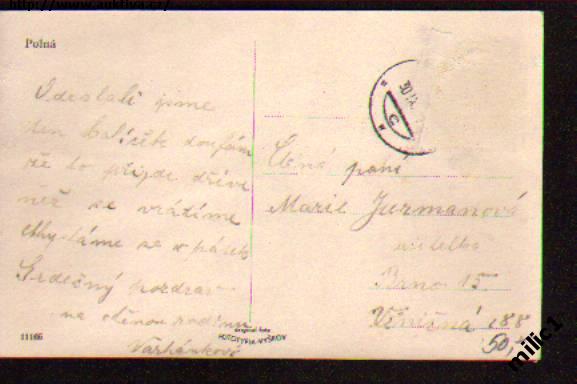 http://www.auktiva.cz/
Polná
Odeslali jsme
ten balíček doufám
že to přijde dříve
než se vrátíme
chystáme se v pátek
Srdečný pozdrav
na ctěnou rodinu
Varhánkovi
11166
original foto
FOTOTYPIA-VYŠKOV
30
Ctěná paní
Marie Jurmanová
učitelka
Brno 15.
Viniční 188
50
milic1